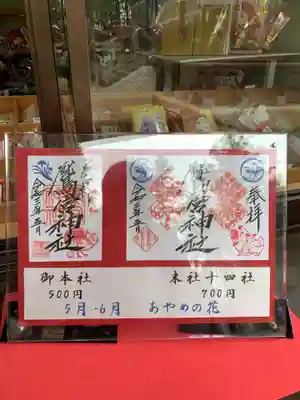 奉拝
神社
令和三年五月
神社
令和三年五月
御本社
500円
末社十四社
700円
5月-6月 あやめの花